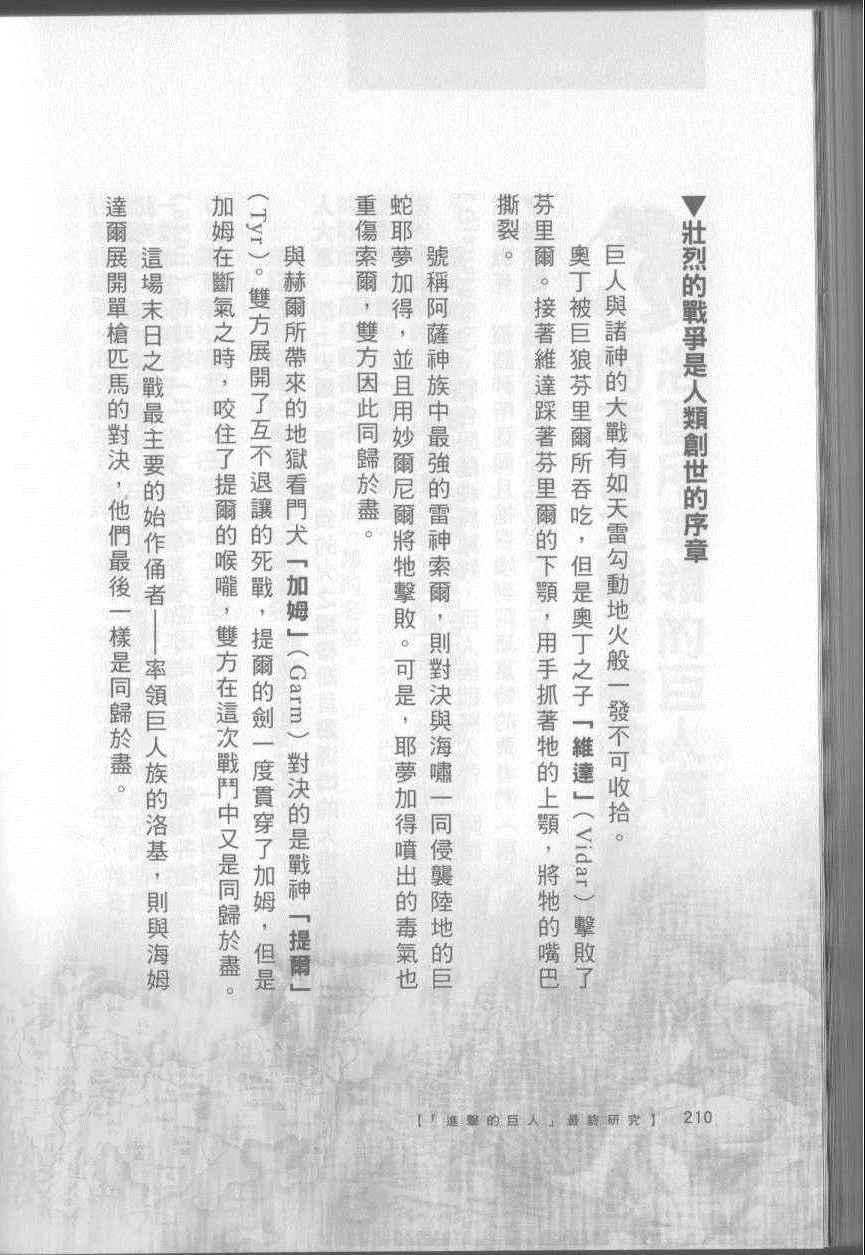 ▼壯烈的戰爭是人類創世的序章
巨人與諸神的大戰有如天雷勾動地火般一發不可收拾。
奧丁被巨狼芬里爾所吞吃，但是奧丁之子「維達」（Vidar）擊敗了
芬里爾。接著維達踩著芬里爾的下顎，用手抓著牠的上顎，將牠的嘴巴
撕裂。
號稱阿薩神族中最強的雷神索爾，則對決與海嘯一同侵襲陸地的巨
蛇耶夢加得，並且用妙爾尼爾將牠擊敗。可是，耶夢加得噴出的毒氣也
重傷索爾，雙方因此同歸於盡。
與赫爾所帶來的地獄看門犬「加姆」（Garm）對決的是戰神「提爾」
（Tyr）。雙方展開了互不退讓的死戰，提爾的劍一度貫穿了加姆，但是
加姆在斷氣之時，咬住了提爾的喉嚨，雙方在這次戰鬥中又是同歸於盡。
這場末日之戰最主要的始作俑者——率領巨人族的洛基，則與海姆
達爾展開單槍匹馬的對決，他們最後一樣是同歸於盡。
【「進擊的巨人」最終研究】 210